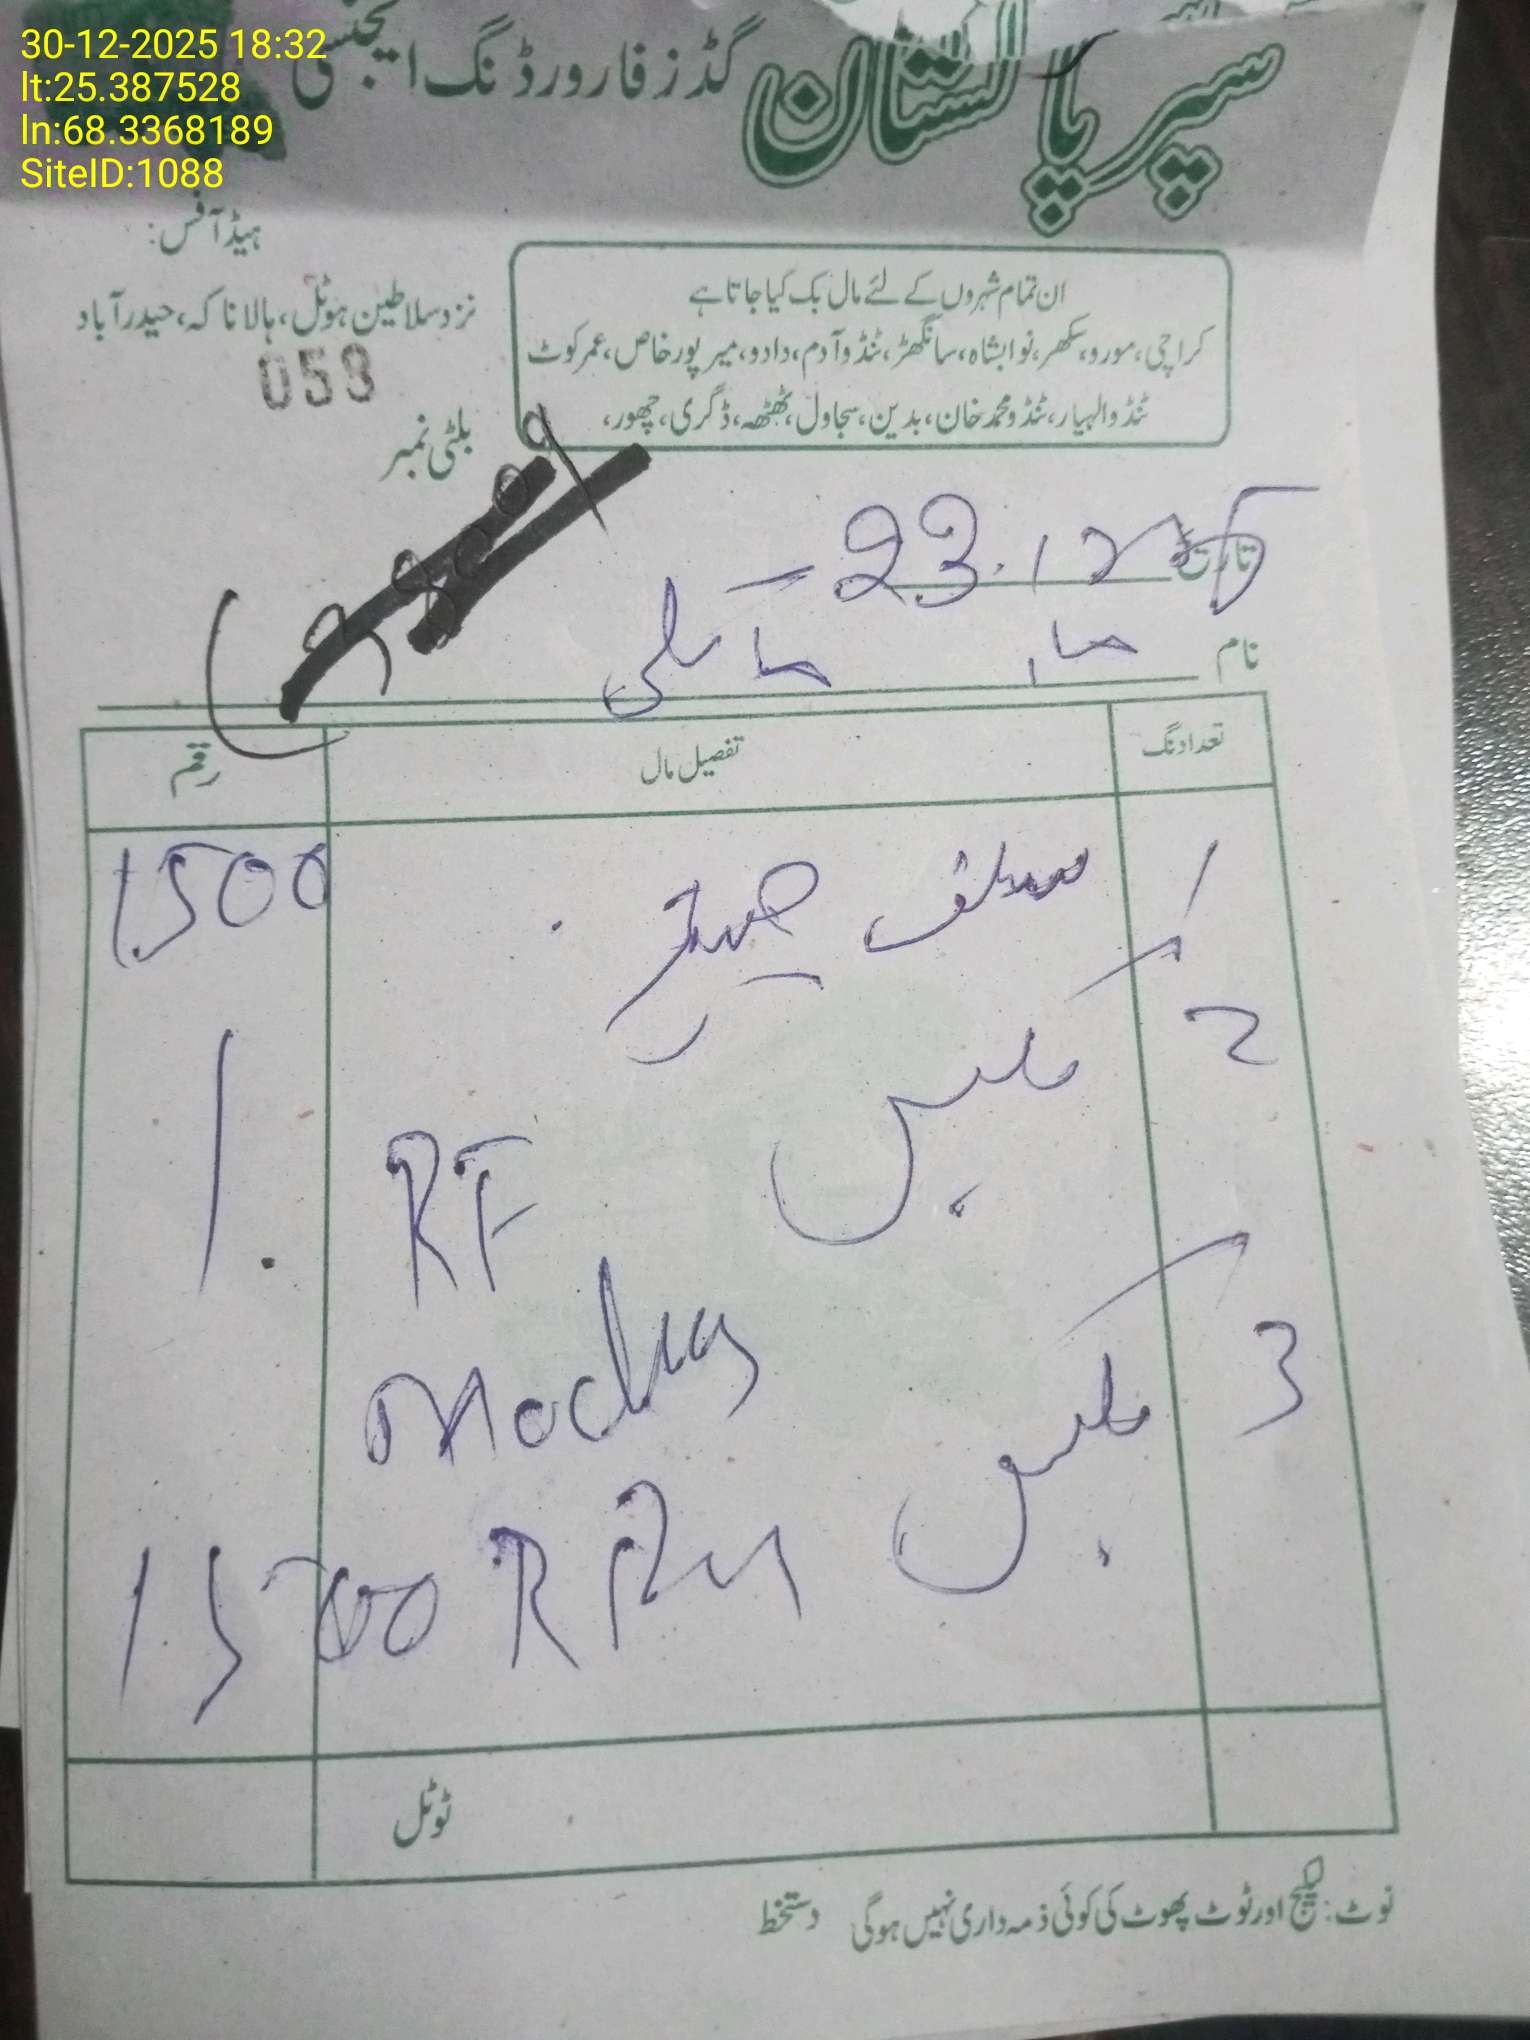 30-12-2025 18:32
lt:25.387528
ln:68.3368189
SiteID:1088
سپر پاکستان گڈز فارورڈنگ ایجنسی
ہیڈ آفس:
نزد سلاطین ہوٹل، ہالا ناکہ، حیدرآباد
053
بلٹی نمبر
ان تمام شہروں کے لئے مال بک کیا جاتا ہے
کراچی، مورو، سکھر، نوابشاہ، سانگھڑ، ٹنڈوآدم، دادو، میرپورخاص، عمرکوٹ
ٹنڈوالہیار، ٹنڈومحمدخان، بدین، سجاول، ٹھٹھہ، ڈگری، چھور،
تاریخ 23.12
نام ماتلی
تعداد نگ تفصیل مال رقم
1 1500
2 بکس RF
3 بکس RPM 1500
ٹوٹل
نوٹ: لیکج اور ٹوٹ پھوٹ کی کوئی ذمہ داری نہیں ہوگی دستخط